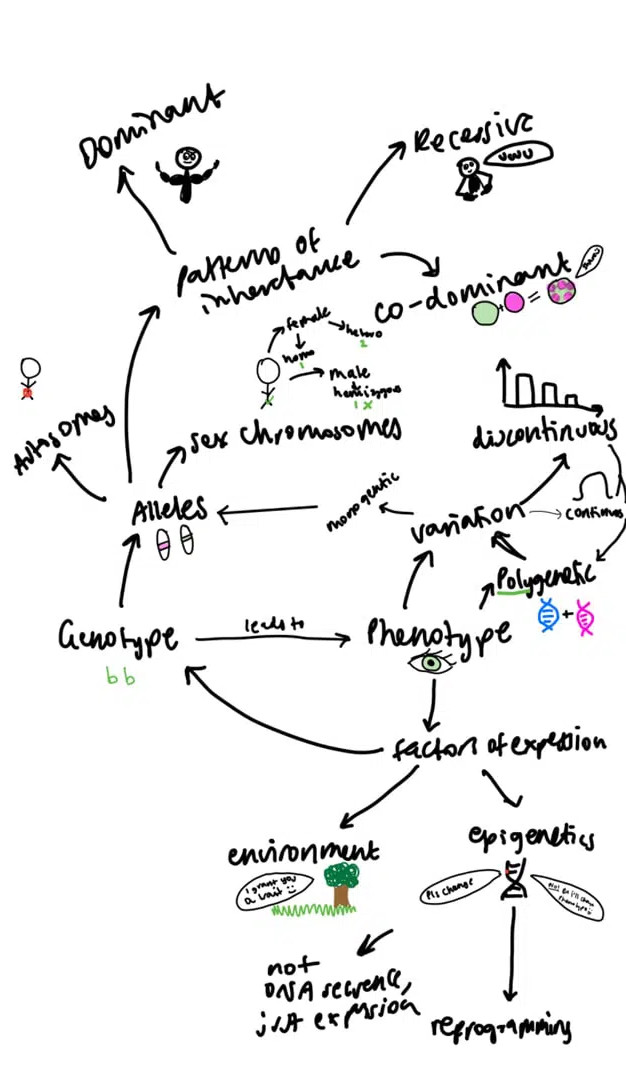 Dominant
Recessive
uwu
patterns of
inheritance
co-dominant
+ =
female
hetero
2
homo
1
male
hemizygous
1 x
Autosomes
sex chromosomes
discontinuous
Alleles
monogentic
variation
continuous
Polygenetic
+
Genotype
leads to
Phenotype
bb
factors of expression
environment
epigenetics
I grant you
a trait
Pls change
not
DNA sequence,
just expression
reprogramming